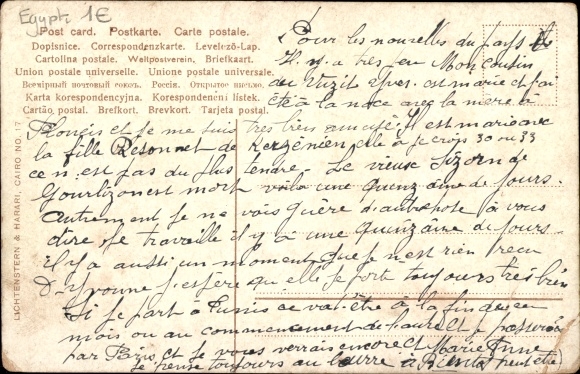 Egypt: 1E
Post card. Postkarte. Carte postale.
Dopisnice. Correspondenzkarte. Levelező-Lap.
Cartolina postale. Weltpostverein. Briefkaart.
Union postale universelle. Unione postale universale.
Всемірный почтовый союзъ. Россія. Открытое письмо.
Karta korespondencyjna. Korespondenční lístek.
Cartão postal. Brefkort. Brevkort. Tarjeta postal.
LICHTENSTERN & HARARI, CAIRO NO. 17
Pour les nouvelles du pays
il n.y a très peu Mon Cousin
du Yves. est marié et j'ai
été à la noce avec la mère à
Plougis et je me suis très bien amusé. Il est marié avec
la fille de Kerzénien, elle a je crois 30 ou 33
ce n.est pas du plus tendre. Le vieux de
est mort voilà une quinzaine de jours.
Autrement je ne vois guère d'autre chose à vous
dire. Je travaille il y a une quinzaine de jours.
il y a aussi un moment que je n'est rien recu
D.Yvonne j.espère que elle se porte toujours très bien
Si je part à Tunis ce vat.être à la fin de ce
mois ou au commencement de l'autre et je passerai
par Paris et je vous verrais encore et Marie Anne
je pense toujours au beurre à Bientôt peut être